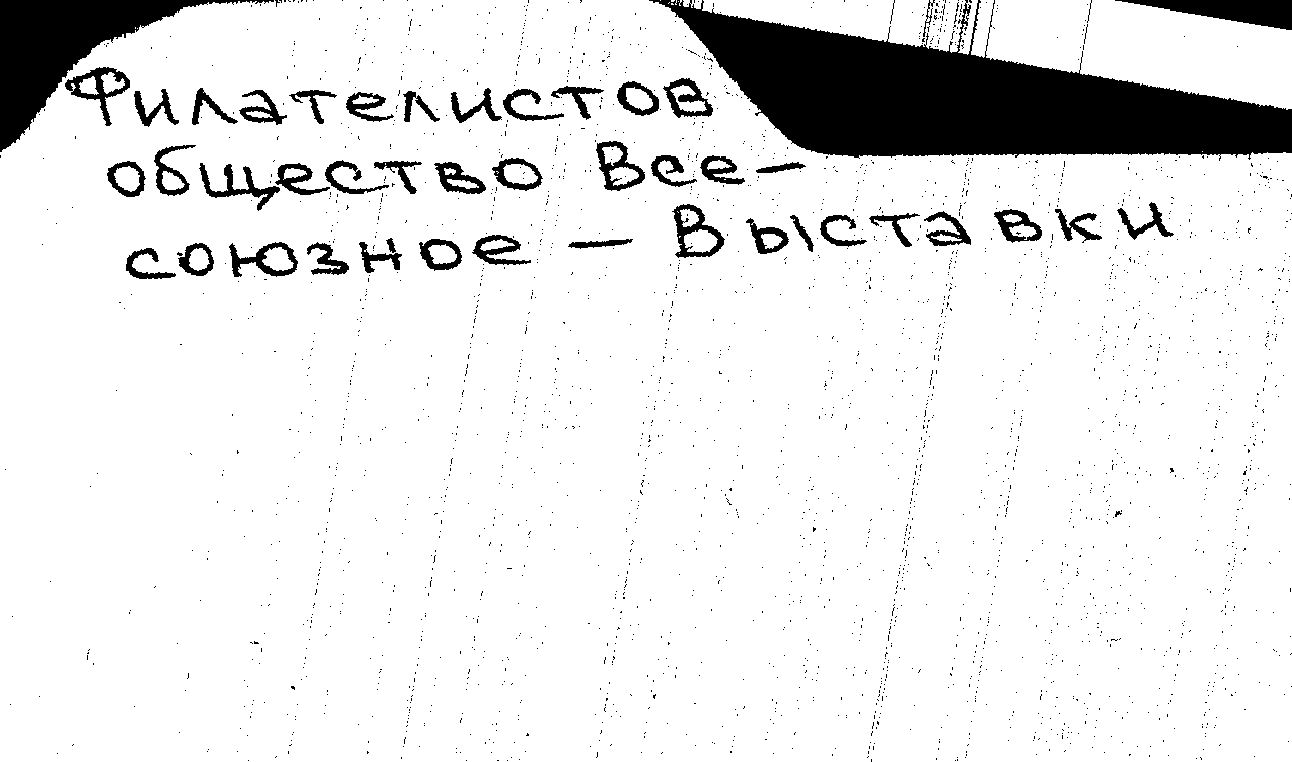 Филателистов
общество Все-
союзное - Выставки